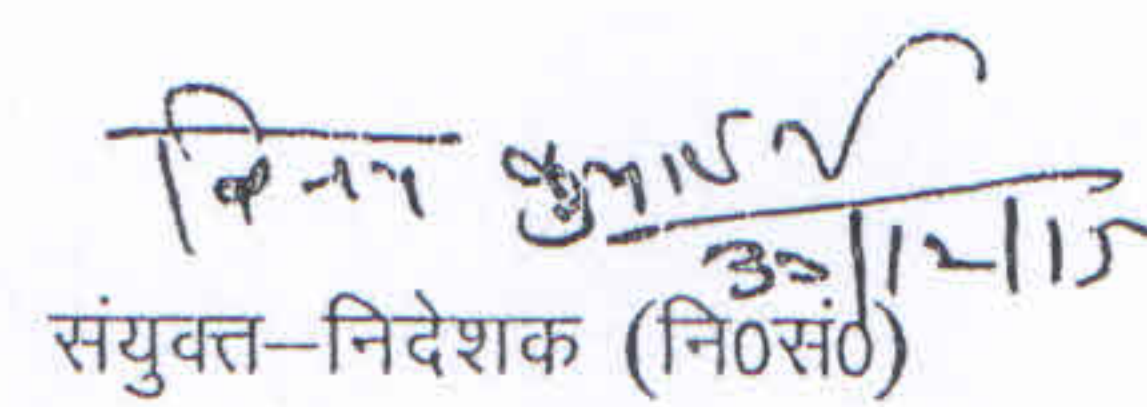 विनय कुमार
30/12/15
संयुक्त–निदेशक (नि0सं0)